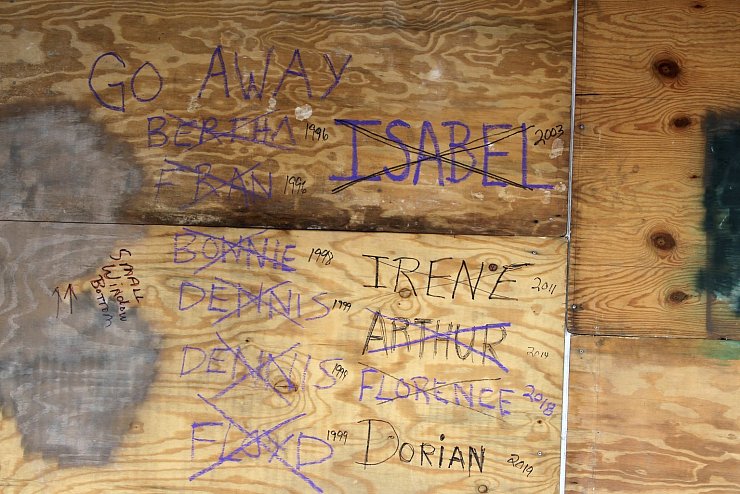 GO AWAY
BERTHA 1996
FRAN 1996
BONNIE 1998
DENNIS 1999
DENNIS 1999
FLOYD 1999
ISABEL 2003
IRENE 2011
ARTHUR 2014
FLORENCE 2018
DORIAN 2019
SMALL
WINDOW
BOTTOM